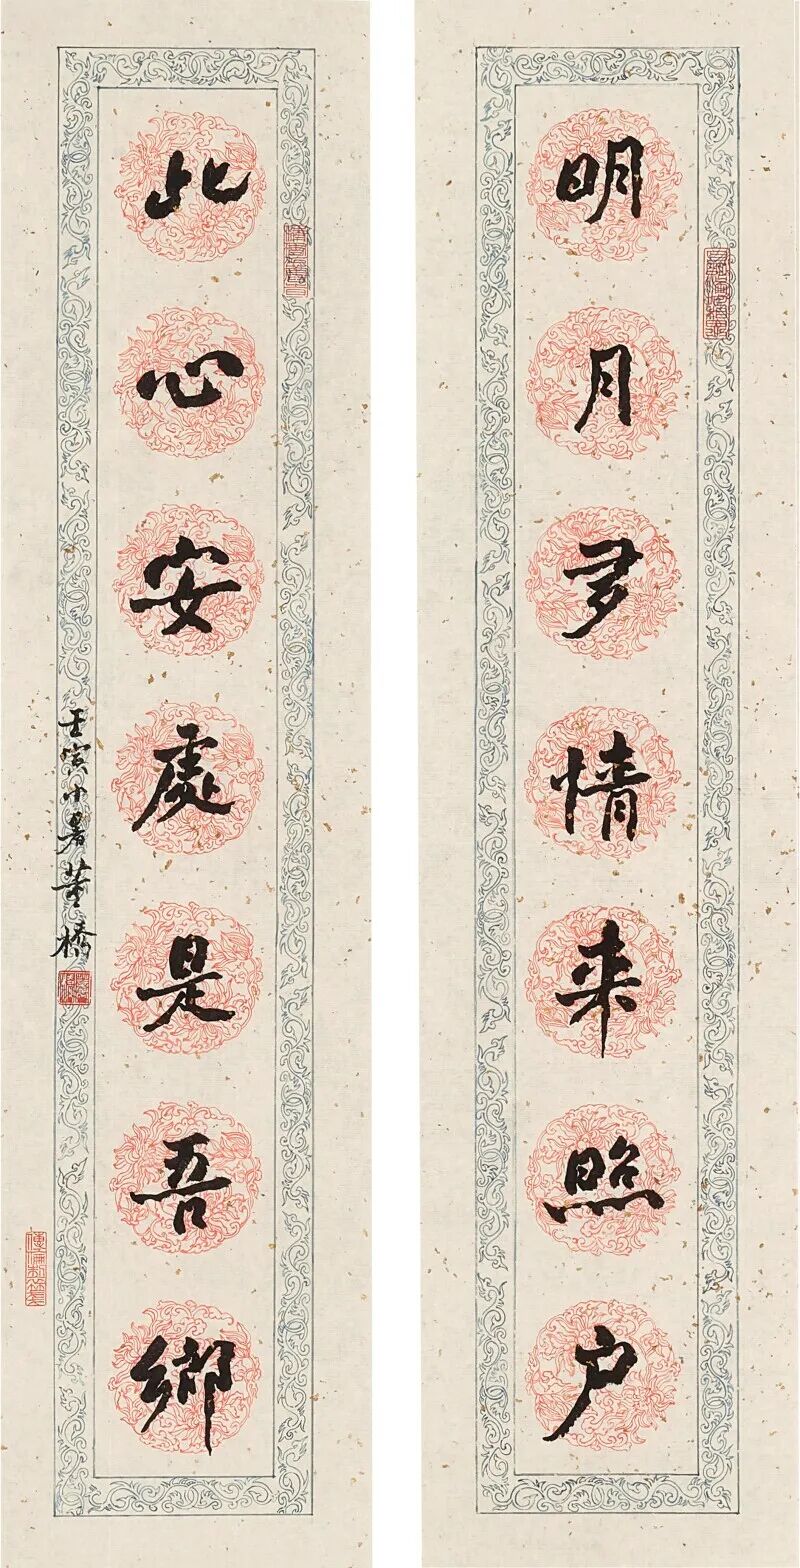 明月多情来照户
此心安處是吾鄉
壬寅小暑董橋